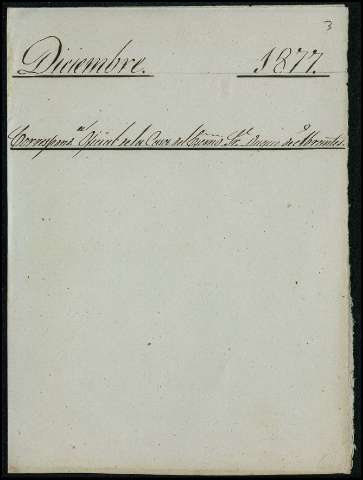 3
Diciembre. 1877.
Correspond.ª Oficial de la Casa del Excmo. Sr. Duque de